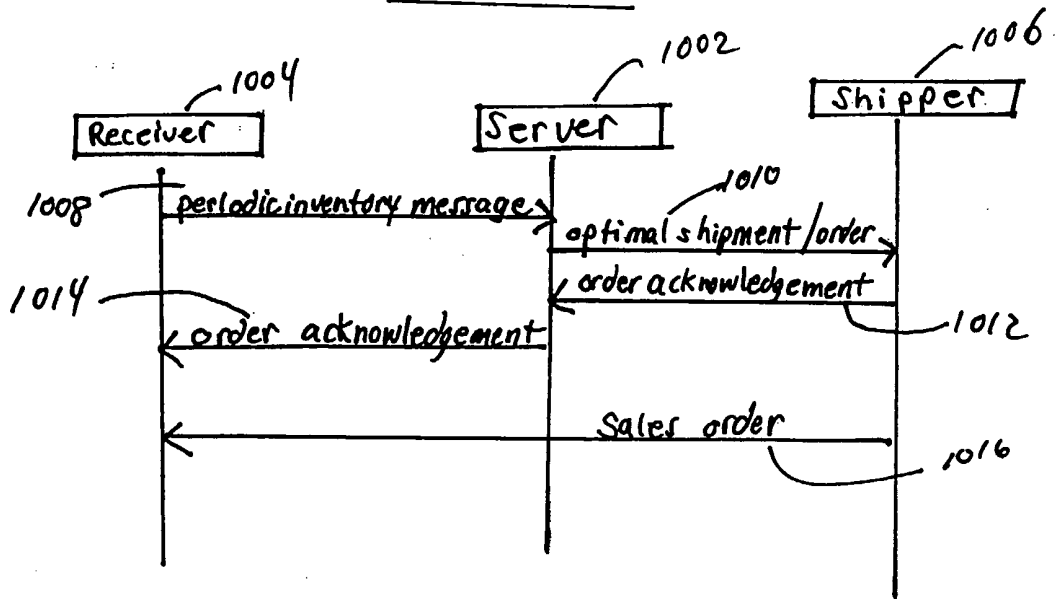 1006
1002
1004
Shipper
Receiver
Server
1010
1008
periodic inventory message
optimal shipment/order
order acknowledgement
1014
1012
order acknowledgement
Sales order
1016